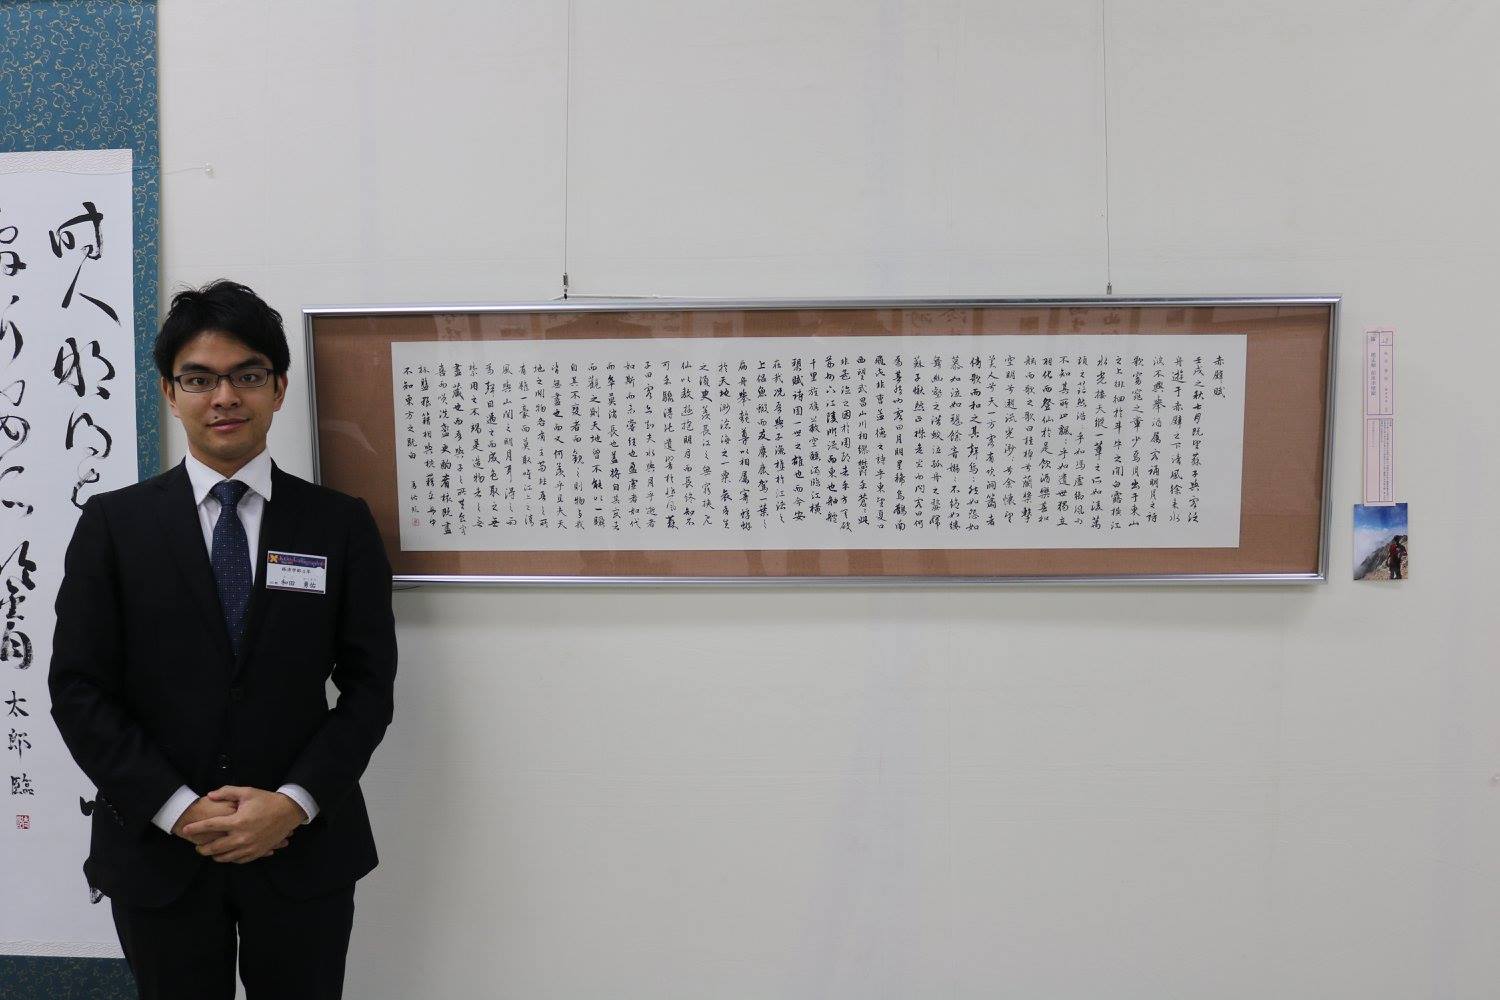 太郎臨
経済学部三年
和田 勇佑
赤壁賦
壬戌之秋七月既望蘇子與客泛
舟遊于赤壁之下清風徐來水
波不興舉酒屬客誦明月之詩
歌窈窕之章少焉月出于東山
之上徘徊於斗牛之間白露橫江
水光接天縱一葦之所如凌萬
頃之茫然浩〻乎如馮虛御風而
不知其所止飄〻乎如遺世獨立
羽化而登仙於是飲酒樂甚扣
舷而歌之歌曰桂棹兮蘭槳擊
空明兮泝流光渺〻兮余懷望
美人兮天一方客有吹洞簫者
倚歌而和之其聲烏〻然如怨如
慕如泣如訴餘音嫋〻不絕如縷
舞幽壑之潛蛟泣孤舟之嫠婦
蘇子愀然正襟危坐而問客曰何
為其然也客曰月明星稀烏鵲南
飛此非曹孟德之詩乎東望夏口
西望武昌山川相繆欝乎蒼〻此
非孟德之困於周郎者乎方其破
荊州下江陵順流而東也舳艫
千里旌旗蔽空釃酒臨江橫
槊賦詩固一世之雄也而今安
在哉況吾與子漁樵於江渚之
上侶魚蝦而友麋鹿駕一葉之
扁舟舉匏尊以相屬寄蜉蝣
於天地渺滄海之一粟哀吾生
之須臾羨長江之無窮挾飛
仙以遨遊抱明月而長終知不
可乎驟得託遺響於悲風蘇
子曰客亦知夫水與月乎逝者
如斯而未嘗往也盈虛者如代
而卒莫消長也蓋將自其變者
而觀之則天地曾不能以一瞬
自其不變者而觀之則物與我
皆無盡也而又何羨乎且夫天
地之間物各有主苟非吾之所
有雖一毫而莫取唯江上之清
風與山間之明月耳得之而
為聲目遇之而成色取之無
禁用之不竭是造物者之無
盡藏也而吾與子之所共食客
喜而笑洗盞更酌肴核既盡
杯盤狼籍相與枕藉乎舟中
不知東方之既白
勇佑臨